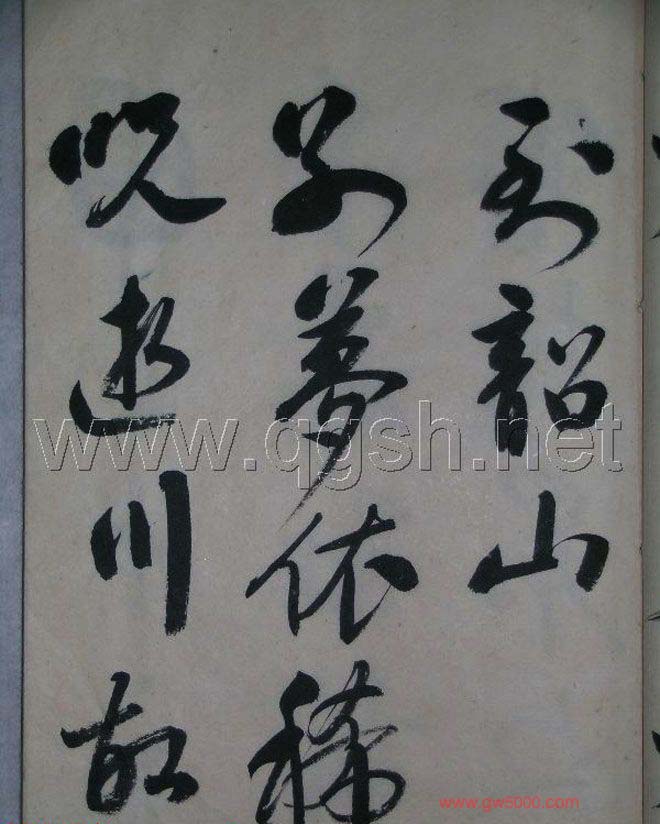 到韶山
别梦依稀
呪逝川故
www.qgsh.net
www.gw5000.com